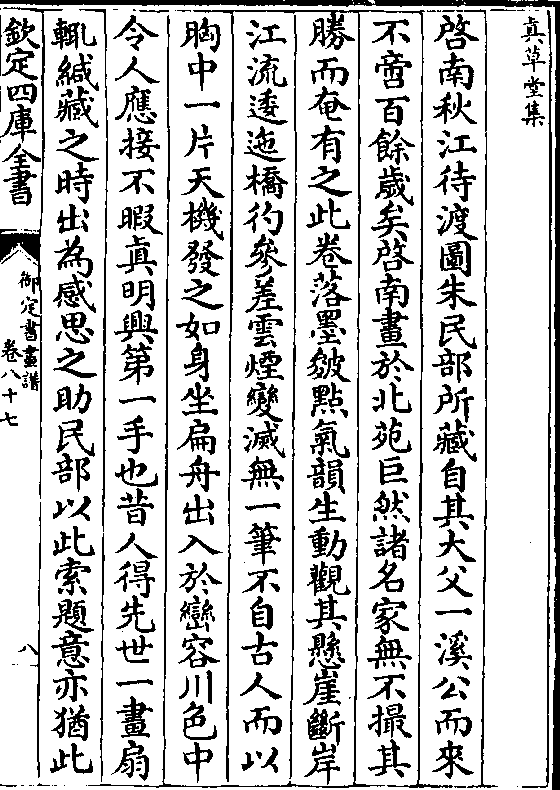 真草堂集
啓南秋江待渡圖朱民部所藏自其大父一溪公而來
不啻百餘歲矣啓南畫於北苑巨然諸名家無不撮其
勝而奄有之此卷落墨皴點氣韻生動觀其懸崖斷岸
江流逶迤橋彴參差雲煙變滅無一筆不自古人而以
胸中一片天機發之如身坐扁舟出入於巒容川色中
令人應接不暇眞明興第一手也昔人得先世一畫扇
輒緘藏之時出為感思之助民部以此索題意亦猶此
欽定四庫全書
御定書畫譜
卷八十七
八